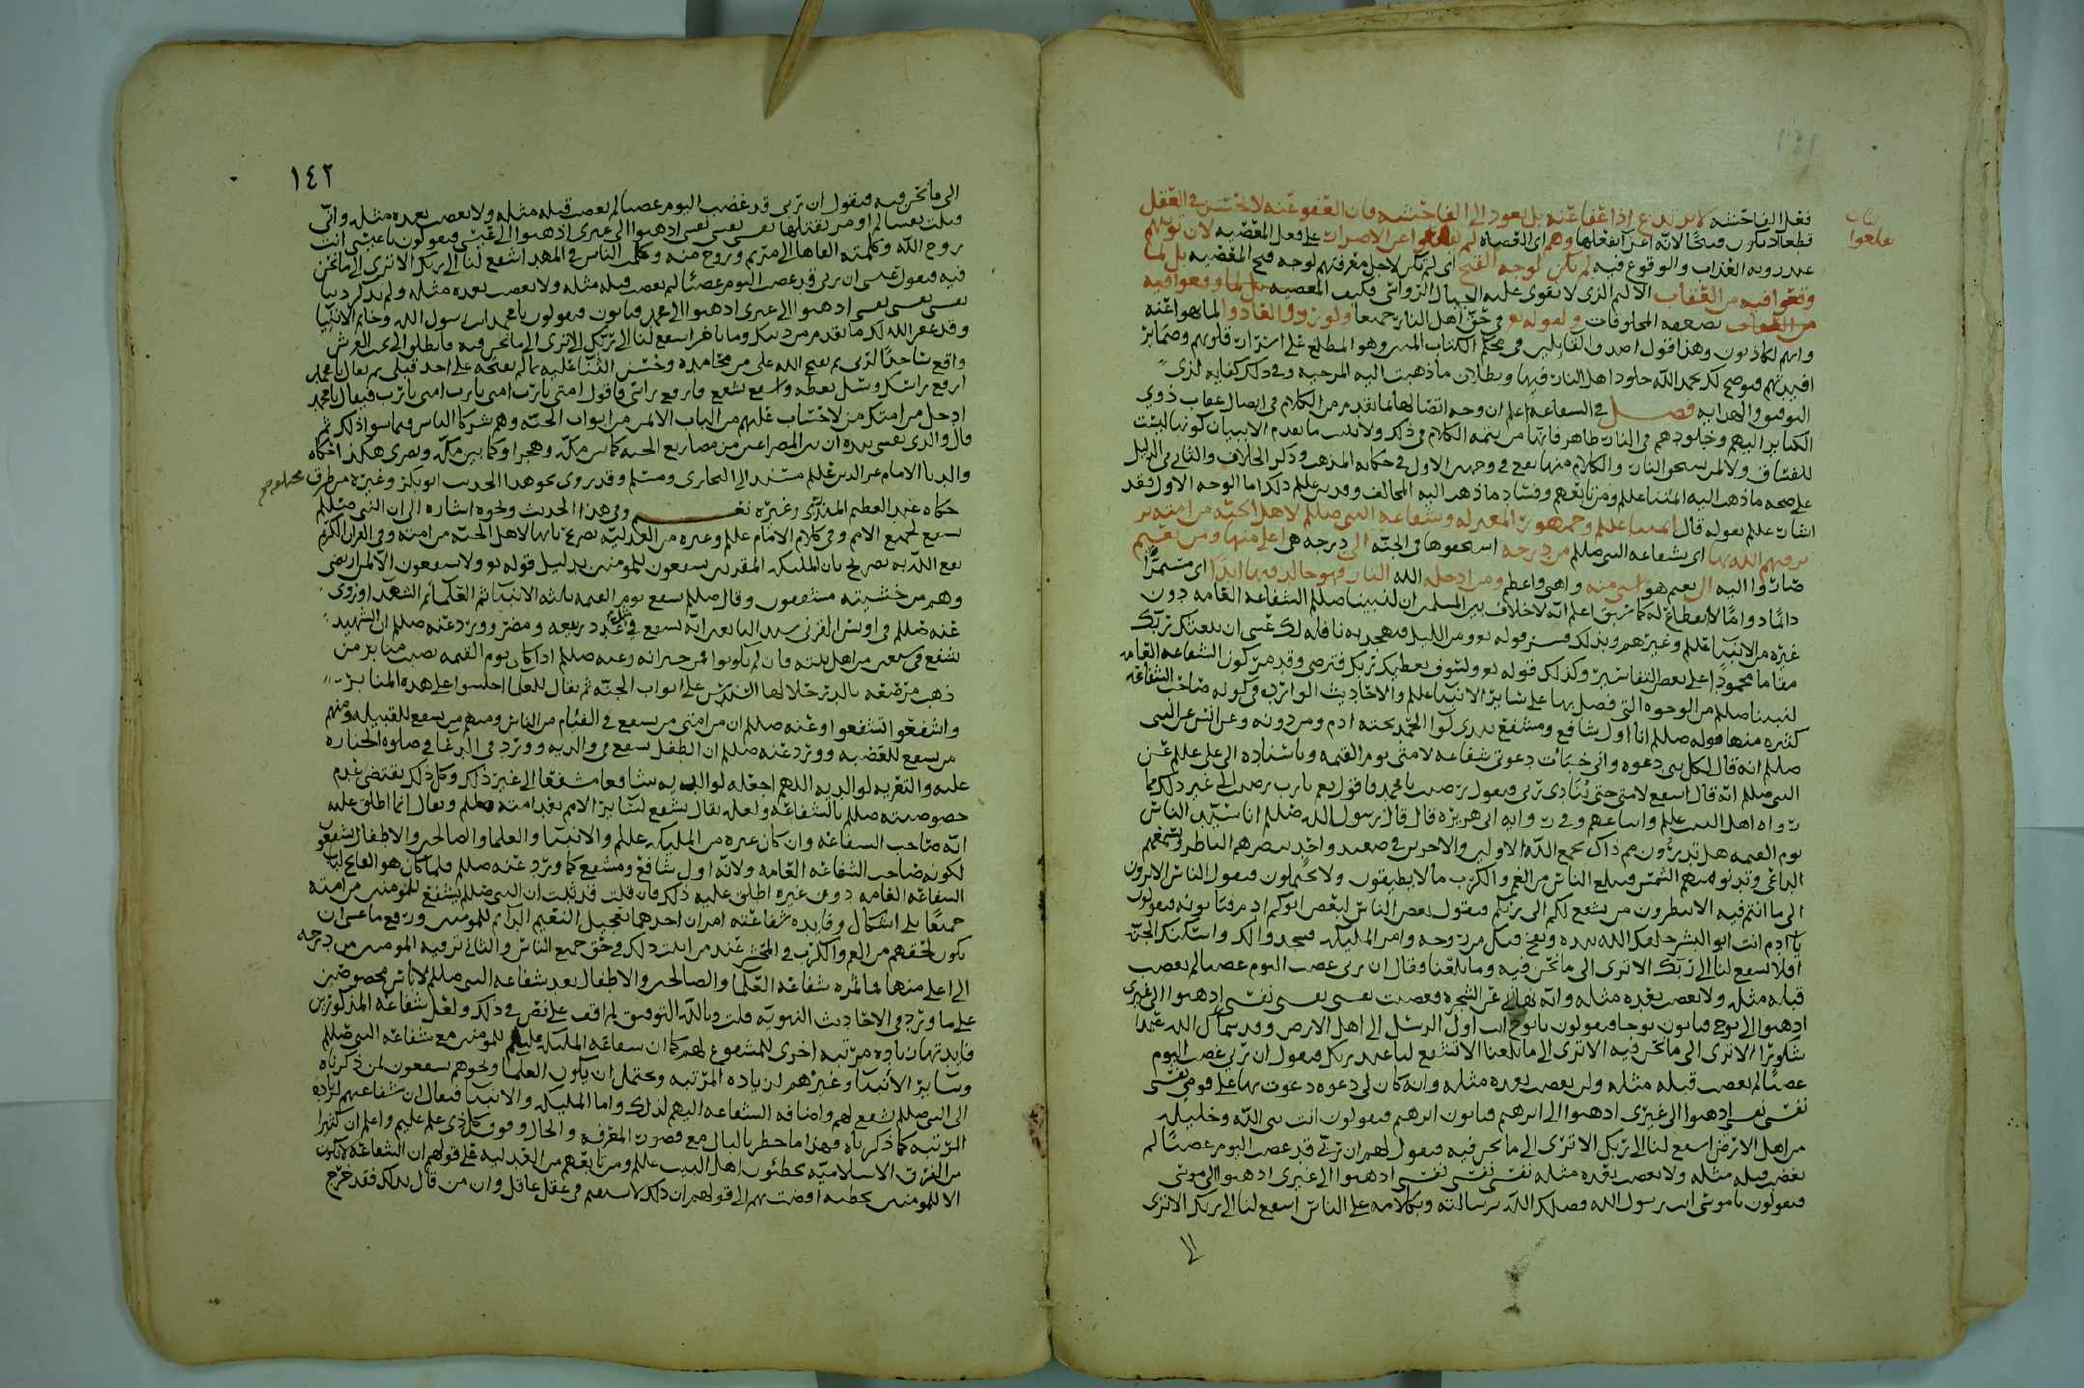 فعل الفاحشة لا يرتدع اذا عفا عنه بل يعود الى الفاحشة فان العفو عنه لا يحسن في العقل
قطعا اذ يكون قبيحا لانه اغرا بفعلها وهم اي العصاة لم اعن الاصرار على فعل المعصيه لان توبتهم
عند رويه العذاب والوقوع فيه لم تكن لوجه القبح اي لم تكن لاجل معرفتهم لوجه قبح المعصيه بل لما
وقعوا فيه من العقاب الاليم الذي لا تقوى عليه الجبال الرواسي فكيف بل لما وقعوا فيه
من العقاب بضعفه المخلوقات ولقوله تع في حق اهل النار جميعا ولو ردوا لعادوا لما نهوا عنه
وانهم لكاذبون وهذا قول اصدق القايلين في محكم الكتاب المبين وهو المطلع على اسرار قلوبهم وضماير
افيدتهم فوضح لك بحمد الله خلود اهل النار فيها وبطلان ما ذهبت اليه المرجية وفي ذلك كفايه لذي
التوفيق والهدايه فصل في الشفاعه اعلم ان وجه اتصالها بما تقدم من الكلام في ايصال عقاب ذوي
الكباير اليهم وخلودهم في النار ظاهر فانها من تتمه الكلام في ذلك ولا يلتبس ما تقدم الا ببيان كونها ليست
للفساق ولا لمن يستحق النار والكلام منها يقع في وجهين الاول في حكايه المذهب وذكر الخلاف والثاني في الدليل
على صحه ما ذهب اليه ائمتنا علم ومن تابعهم وفساد ما ذهب اليه المخالف وقد بين علم ذلك اما الوجه الاول فقد
اشار علم بقوله قال ائمتنا علم وجمهور المعتزله وشفاعه النبي صللم لاهل الجنه من امته
يرقيهم الله بها اي بشفاعه النبي صللم من درجه استحقوها في الجنه الى درجه هي اعلى منها ومن نعيم
صاروا اليه الى نعيم هو اسنى منه واهنى واعظم ومن ادخله الله النار فهو خالد فيها ابدا اي مستمرا
دائما دواما لا انقطاع له كما سبق اعلم انه لا خلاف بين المسلمين ان لنبينا صللم الشفاعه العامه دون
غيره من الانبيا علم وغيرهم وبذلك فسر قوله تع ومن الليل فتهجد به نافله لك عسى ان يبعثك ربك
مقاما محمودا على بعض التفاسير وكذلك قوله تع ولسوف يعطيك ربك فترضى وقد من كون الشفاعه العامه
لنبينا صللم من الوجوه التي فضل بها على ساير الانبيا علم والاحاديث الوارده في كونه صاحب الشفاعه
كثيره منها قوله صللم انا اول شافع ومشفع بيدي لوا الحمد تحته ادم ومن دونه وعن انس عن النبي
صللم انه قال لكل نبي دعوه واني خبات دعوتي شفاعه لامتي يوم القيمه وباسناده الى علي علم عن
النبي صللم انه قال اشفع لامتي حتى ينادي ربي فيقول رضيت يا محمد فاقول نعم يا رب رضيت الى غير ذلك مما
رواه اهل البيت علم واتباعهم وفي روايه ابي هريره قال قال رسول الله صللم انا سيد الناس
يوم القيمه هل تدرون مم ذاك يجمع الله الاولين والاخرين في صعيد واحد يبصرهم الناظر ويسمعهم
الداعي وتدنو منهم الشمس فيبلغ الناس من الغم والكرب ما لا يطيقون ولا يحتملون فيقول الناس الا ترون
الى ما انتم فيه الا تنظرون من يشفع لكم الى ربكم فيقول بعض الناس لبعض ابوكم ادم فياتونه فيقولون
يا آدم انت ابو البشر خلقك الله بيده ونفخ فيك من روحه وامر المليكه فسجدوا لك واسكنك الجنه
افلا تشفع لنا الى ربك الا ترى الى ما نحن فيه وما بلغنا وقال ان ربي غضب اليوم غضبا لم يغضب
قبله مثله ولا يغضب بعده مثله وانه نهاني عن الشجره فعصيت نفسي نفسي نفسي اذهبوا الى غيري
اذهبوا الى نوح فياتون نوحا فيقولون يا نوح انت اول الرسل الى اهل الارض وقد سماك الله عبدا
شكورا الا ترى الى ما نحن فيه الا ترى الى ما بلغنا الا تشفع لنا عند ربك فيقول ان ربي غضب اليوم
غضبا لم يغضب قبله مثله ولن يغضب بعده مثله وانه كان لي دعوه دعوت بها على قومي نفسي
نفسي نفسي اذهبوا الى غيري اذهبوا الى ابرهيم فياتون ابرهيم فيقولون انت نبي الله وخليله
من اهل الارض اشفع لنا الى ربك الا ترى الى ما نحن فيه فيقول لهم ان ربي قد غضب اليوم غضبا لم
يغضب قبله مثله ولا يغضب بعده مثله نفسي نفسي نفسي اذهبوا الى غيري اذهبوا الى موسى
فيقولون يا موسى انت رسول الله فضلك الله برسالته وبكلامه على الناس اشفع لنا الى ربك الا ترى
الى
١٤٢
الى ما نحن فيه فيقول ان ربي قد غضب اليوم غضبا لم يغضب قبله مثله ولا يغضب بعده مثله واني
قتلت نفسا لم اومر بقتلها نفسي نفسي نفسي اذهبوا الى غيري اذهبوا الى عيسى فيقولون يا عيسى انت
روح الله وكلمته القاها الى مريم وروح منه وكلمت الناس في المهد اشفع لنا الى ربك الا ترى الى ما نحن
فيه فيقول عيسى ان ربي قد غضب اليوم غضبا لم يغضب قبله مثله ولا يغضب بعده مثله ولم يذكر ذنبا
نفسي نفسي نفسي اذهبوا الى غيري اذهبوا الى محمد فياتون فيقولون يا محمد انت رسول الله وخاتم الانبيا
وقد غفر الله لك ما تقدم من ذنبك وما تاخر اشفع لنا الى ربك الا ترى الى ما نحن فيه فانطلق الى تحت العرش
واقع ساجدا لربي ثم يفتح الله علي من محامده وحسن الثنا عليه ما لم يفتحه على احد قبلي ثم يقال يا محمد
ارفع راسك وسل تعطه واشفع تشفع فارفع راسي فاقول امتي يا رب امتي يا رب امتي يا رب فيقال يا محمد
ادخل من امتك من لا حساب عليهم من الباب الايمن من ابواب الجنه وهم شركا الناس فيما سوا ذلك ثم
قال والذي نفسي بيده ان بين المصراعين من مصاريع الجنه كما بين مكه وهجر او كما بين مكه وبصرى هكذا حكاه
والدنا الامام عز الدين علم مسند الى البخاري ومسلم وقد روى نحو هذا الحديث ابو بكر وغيره من طرق
حكاه عبد العظيم المنذري وغيره نعم وفي هذا الحديث ونحوه اشاره الى ان النبي صللم
يشفع لجميع الامم وفي كلام الامام علم وغيره من العدليه تصريح بانها لاهل الجنه من امته وفي القران الكريم
نفع الله به تصريح بان المليكه المقربين يشفعون للمومنين بدليل قوله تع ولا يشفعون الا لمن ارتضى
وهم من خشيته مشفقون وقال صللم يشفع يوم القيمه ثلثه الانبيا ثم العلما ثم الشهدا وروي
عنه صللم في اويس القرني انه يشفع في عدد ربيعه ومضر وورد عنه صللم ان الشهيد
يشفع في سبعين من اهل بيته وعنه صللم اذا كان يوم القيمه نصبت منابر من
ذهب ثم يقال للعلما اجلسوا على هذه المنابر
واشفعوا تشفعوا وعنه صللم ان من امتي من يشفع في الفئام من الناس ومنهم من يشفع للقبيله ومنهم
من يشفع للعصبه وورد عنه صللم ان الطفل يشفع في والديه وورد في الدعا في صلوه الجنازه
عليه والتعزيه لوالديه اللهم اجعله لوالديه شافعا مشفعا الى غير ذلك وكل ذلك يقتضي عدم
خصوصيته صللم بالشفاعه ولعله يقال يشفع لساير الامم بعد امته صللم ويقال انما اطلق عليه
انه صاحب الشفاعه وان كان غيره من المليكه علم والانبيا والعلما والصالحين والاطفال يشفعون
لكونه صاحب الشفاعه العامه ولانه اول شافع ومشفع كما ورد عنه صللم فلما كان هو الفاتح لباب
الشفاعه العامه دون غيره اطلق عليه ذلك فان قلت قد ثبت ان النبي صللم يشفع للمومنين من امته
جميعا بلا اشكال وفايده شفاعته امران احدهما تعجيل النعيم الدايم للمومنين ورفع ما عسى ان
يكون لحقهم من الغم والكرب في المحشر عند من اثبت ذلك في حق جميع الناس والثاني ترقيه المومنين من درجه
الى اعلى منها فما ثمره شفاعه العلما والصالحين والاطفال بعد شفاعه النبي صللم لاناس مخصوصين
على ما ورد في الاحاديث النبويه قلت وبالله التوفيق لم اقف على نص في ذلك ولعل شفاعه المذكورين
فايدتها زياده مرتبه اخرى للمشفوع لهم كما ان شفاعه المليكه علم للمومنين مع شفاعه النبي صللم
وساير الانبيا وغيرهم لزياده المرتبه ويحتمل ان يكون العلما ونحوهم يشفعون لمن ذكرناه
الى النبي صللم ليشفع لهم واضافه الشفاعه اليهم لذلك واما المليكه والانبيا فيقال ان شفاعتهم لزياده
المرتبه كما ذكرناه وهذا ما خطر بالبال مع قصور المعرفه والحال وفوق كل ذي علم عليم واعلم ان كثيرا
من الفرق الاسلاميه يخطئون اهل البيت علم ومن تابعهم من العدليه على قولهم ان الشفاعه لا تكون
الا للمومنين تخطيه افضت بهم الى قولهم ان ذلك لا يستقيم في عقل عاقل وان من قال بذلك فقد خرج